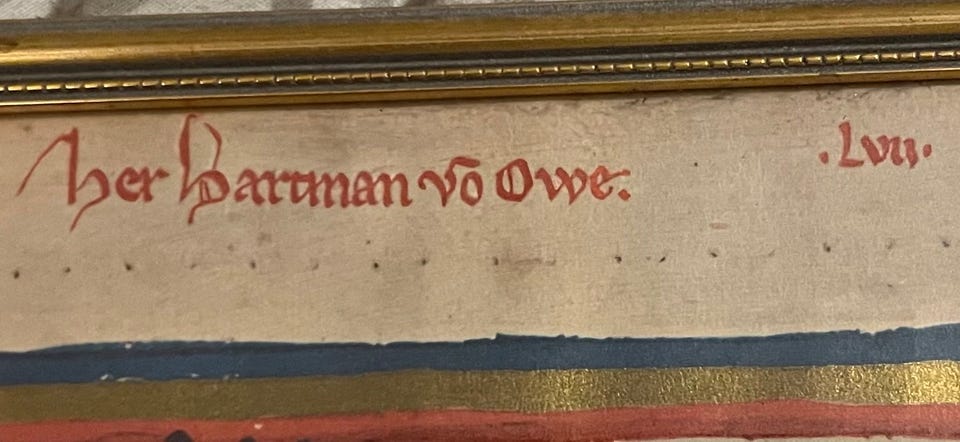 Her Hartman vō Owe. .Lvii.